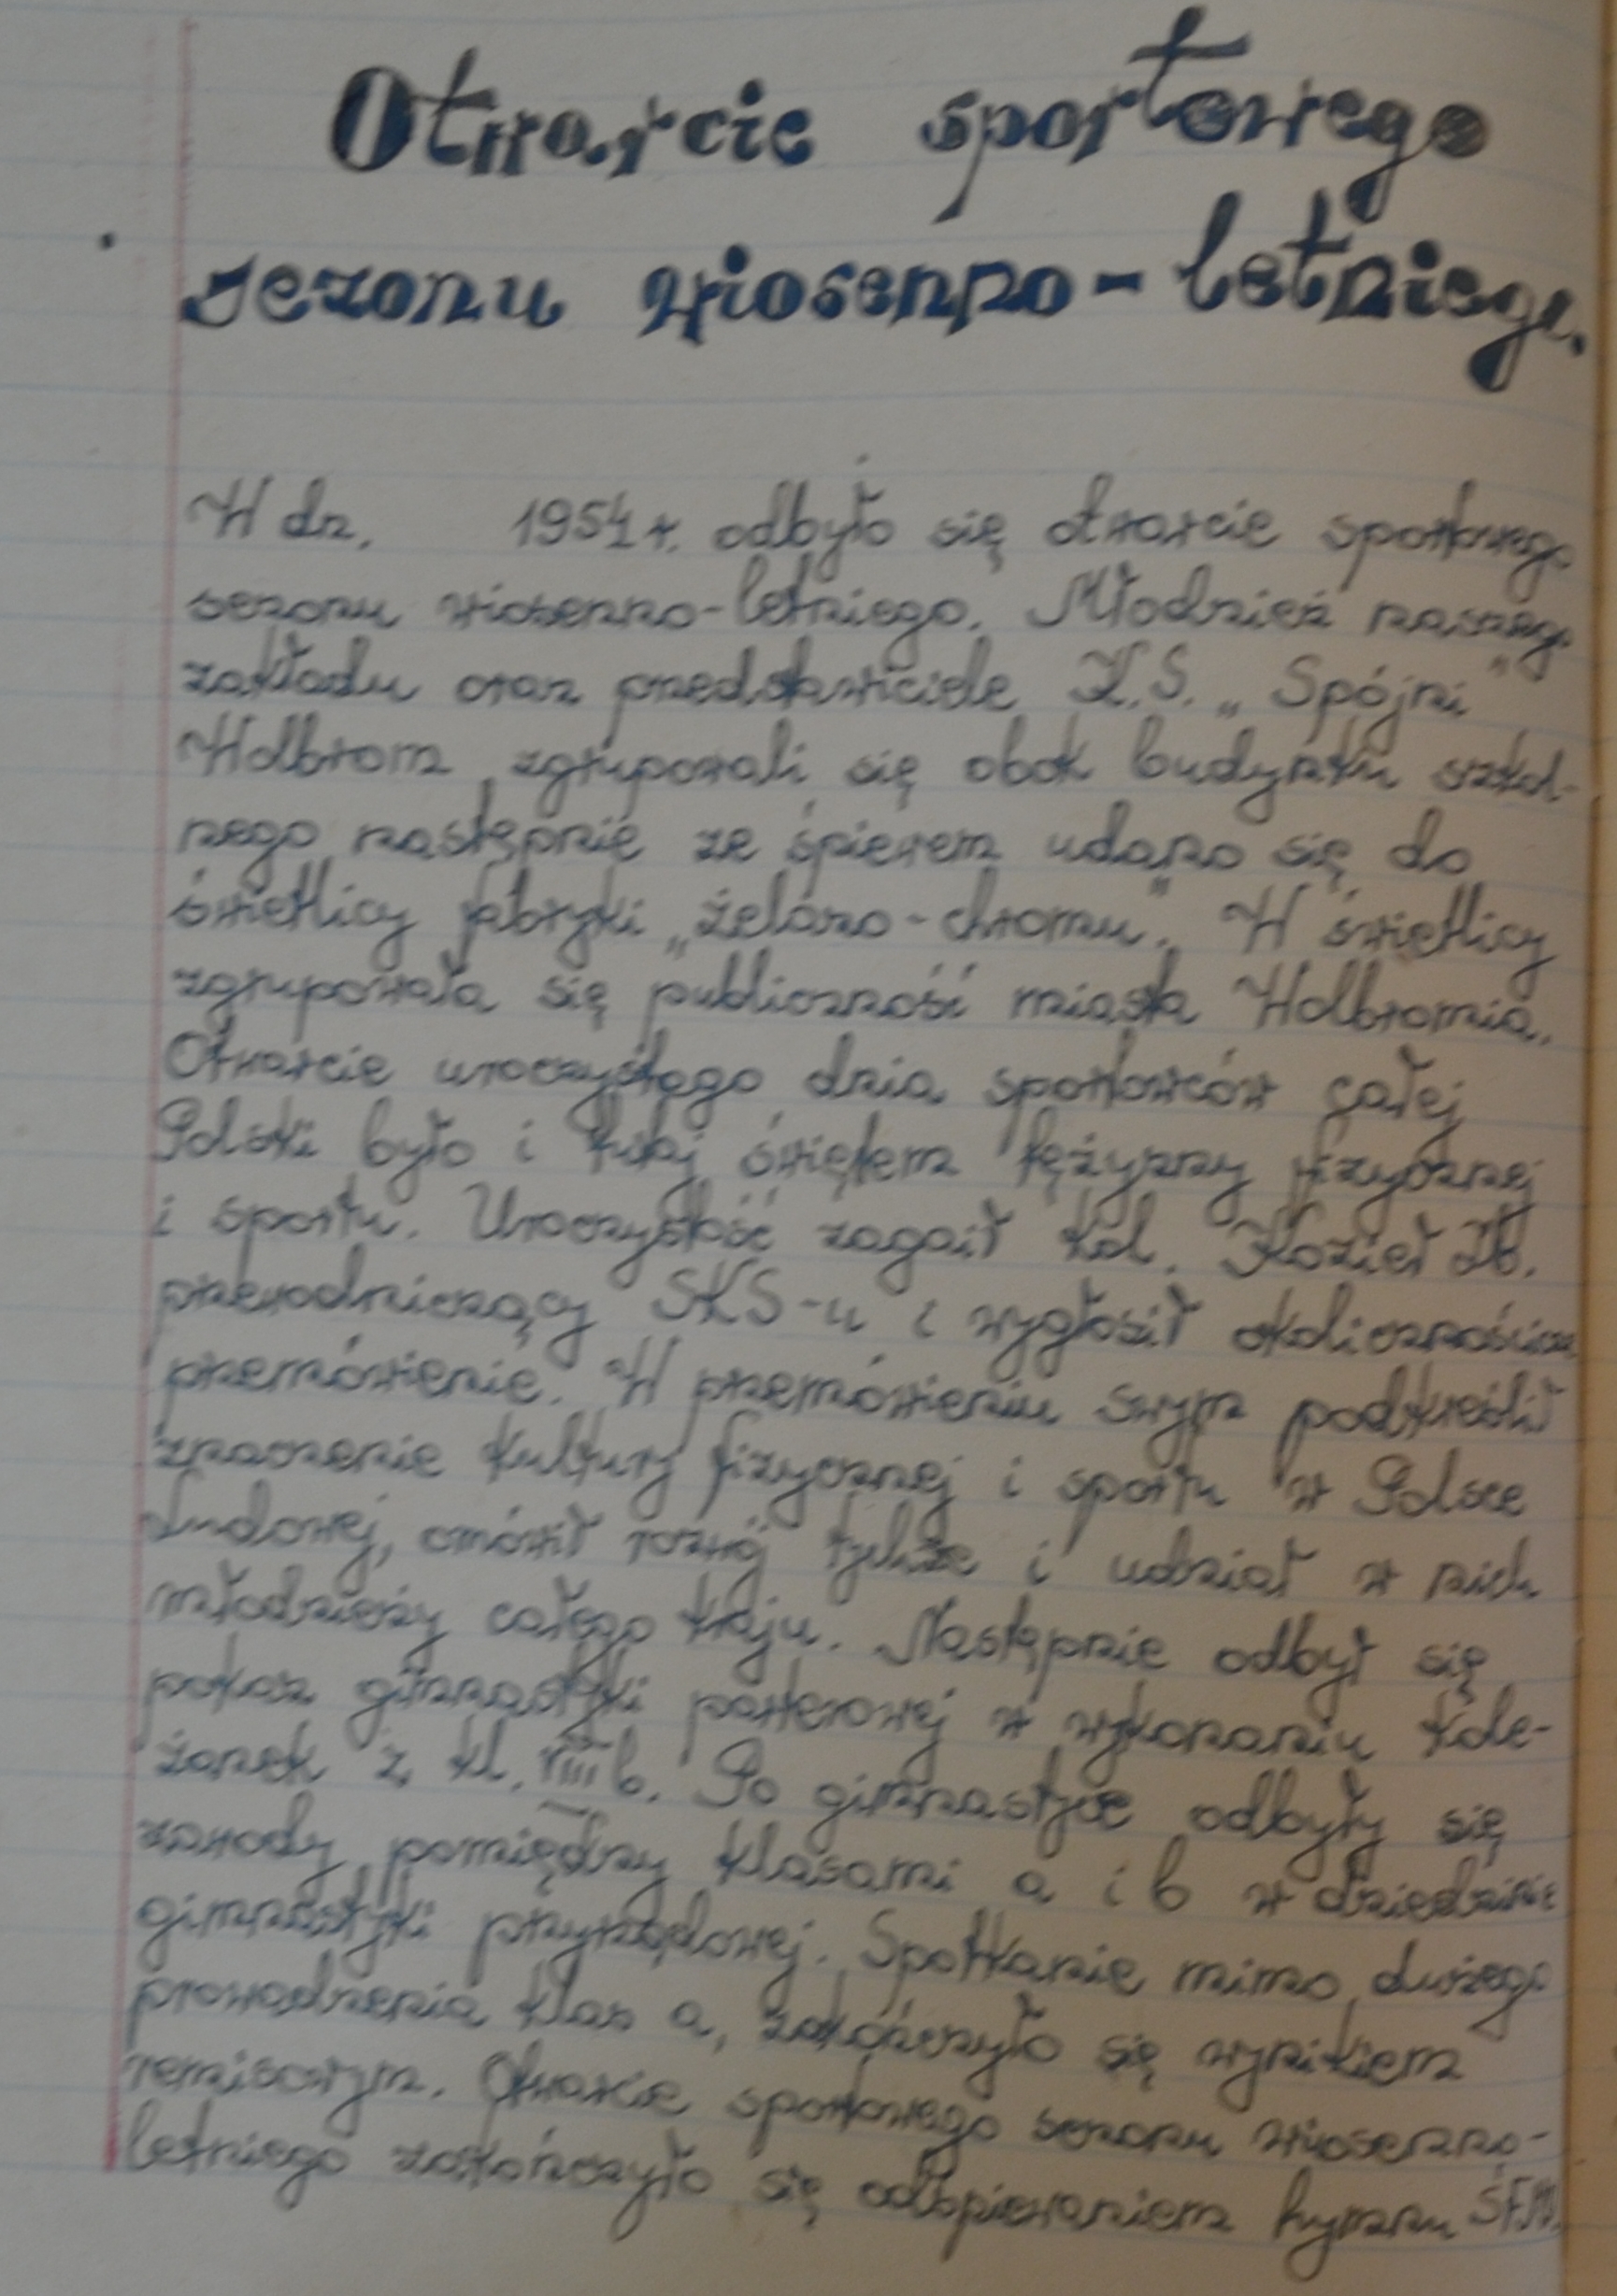 Otwarcie sportowego
sezonu wiosenno-letniego.
W dn. 1954 r. odbyło się otwarcie sportowego
sezonu wiosenno-letniego. Młodzież naszego
zakładu oraz przedstawiciele K.S. „Spójni"
Wolbrom zgrupowali się obok budynku szkol-
nego następnie ze śpiewem udano się do
świetlicy fabryki „żelazo-chromu". W świetlicy
zgrupowała się publiczność miasta Wolbromia.
Otwarcie uroczystego dnia sportowców całej
Polski było i tutaj świętem tężyzny fizycznej
i sportu. Uroczystość zagaił kol. Kozieł Zb.
przewodniczący SKS-u i wygłosił okolicznościowe
przemówienie. W przemówieniu swym podkreślił
znaczenie kultury fizycznej i sportu w Polsce
Ludowej, omówił rozwój tychże i udział w nich
młodzieży całego kraju. Następnie odbył się
pokaz gimnastyki parterowej w wykonaniu kole-
żanek z kl. VIII b. Po gimnastyce odbyły się
zawody pomiędzy klasami a i b w dziedzinie
gimnastyki przyrządowej. Spotkanie mimo dużego
prowadzenia klas a, zakończyło się wynikiem
remisowym. Otwarcie sportowego sezonu wiosenno-
letniego zakończyło się odśpiewaniem hymnu ŚFMD.